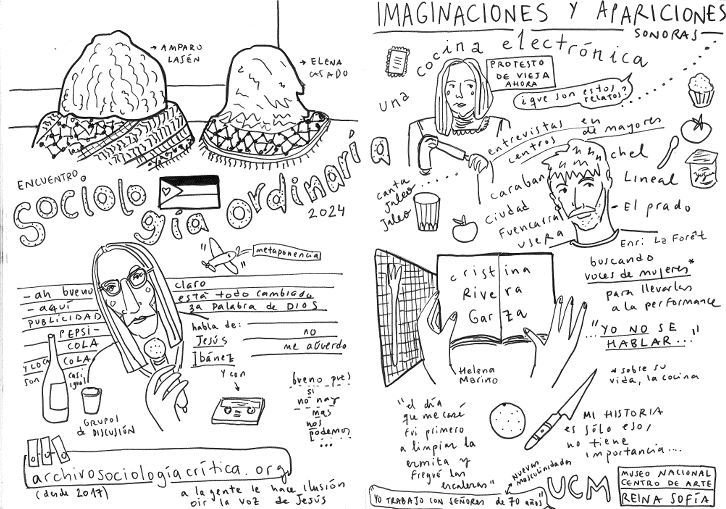 → AMPARO
LASÉN
→ ELENA
CASADO
ENCUENTRO
Sociolo
gía ordinaria
2024
metaponencia
- ah bueno
- aquí
PUBLICIDAD
PEPSI-
COLA
Y COCA COLA
SON CASI
igual
claro
está todo cambiado
la Palabra de DIOS
habla de:
Jesús
Ibáñez
no
me acuerdo
y con
GRUPOS
de DISCUSIÓN
bueno pues
si
no hay
mas
nos
podemos
...
archivosociologíacrítica.org
(desde 2017)
a la gente le hace ilusión
oir la voz de Jesús
IMAGINACIONES Y APARICIONES
SONORAS
una cocina electrónica
PROTESTO
DE VIEJA
AHORA
¿que son estos
relatos?
entrevistas en
centros de mayores
canta
Jaleo
Jaleo
caraban
chel
Lineal
Ciudad
- El prado
Fuencarral
usera
yogur
Enri La Forêt
buscando
voces de mujeres*
para llevarlas
a la performance
cristina
Rivera
Garza
"YO NO SE
HABLAR..."
Helena
Mariño
* sobre su
vida, la cocina
"el día
que me casé
fui primero
a limpiar la
ermita y
fregué las
escaleras"
MI HISTORIA
es sólo eso,
no tiene
importancia...
nuevas
masculinidades
"YO TRABAJO CON SEÑORES de 70 años"
UCM
MUSEO NACIONAL
CENTRO DE ARTE
REINA SOFÍA